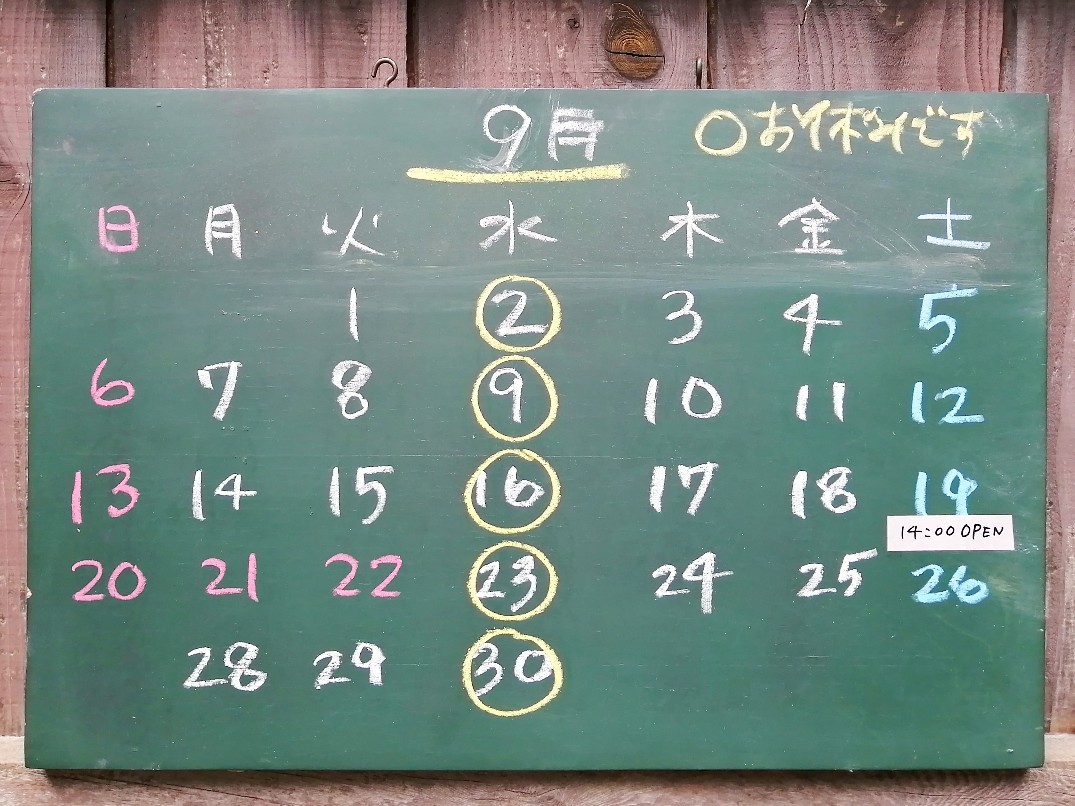 9月 ○お休みです
日 月 火 水 木 金 土
1 2 3 4 5
6 7 8 9 10 11 12
13 14 15 16 17 18 19
14:00 OPEN
20 21 22 23 24 25 26
28 29 30